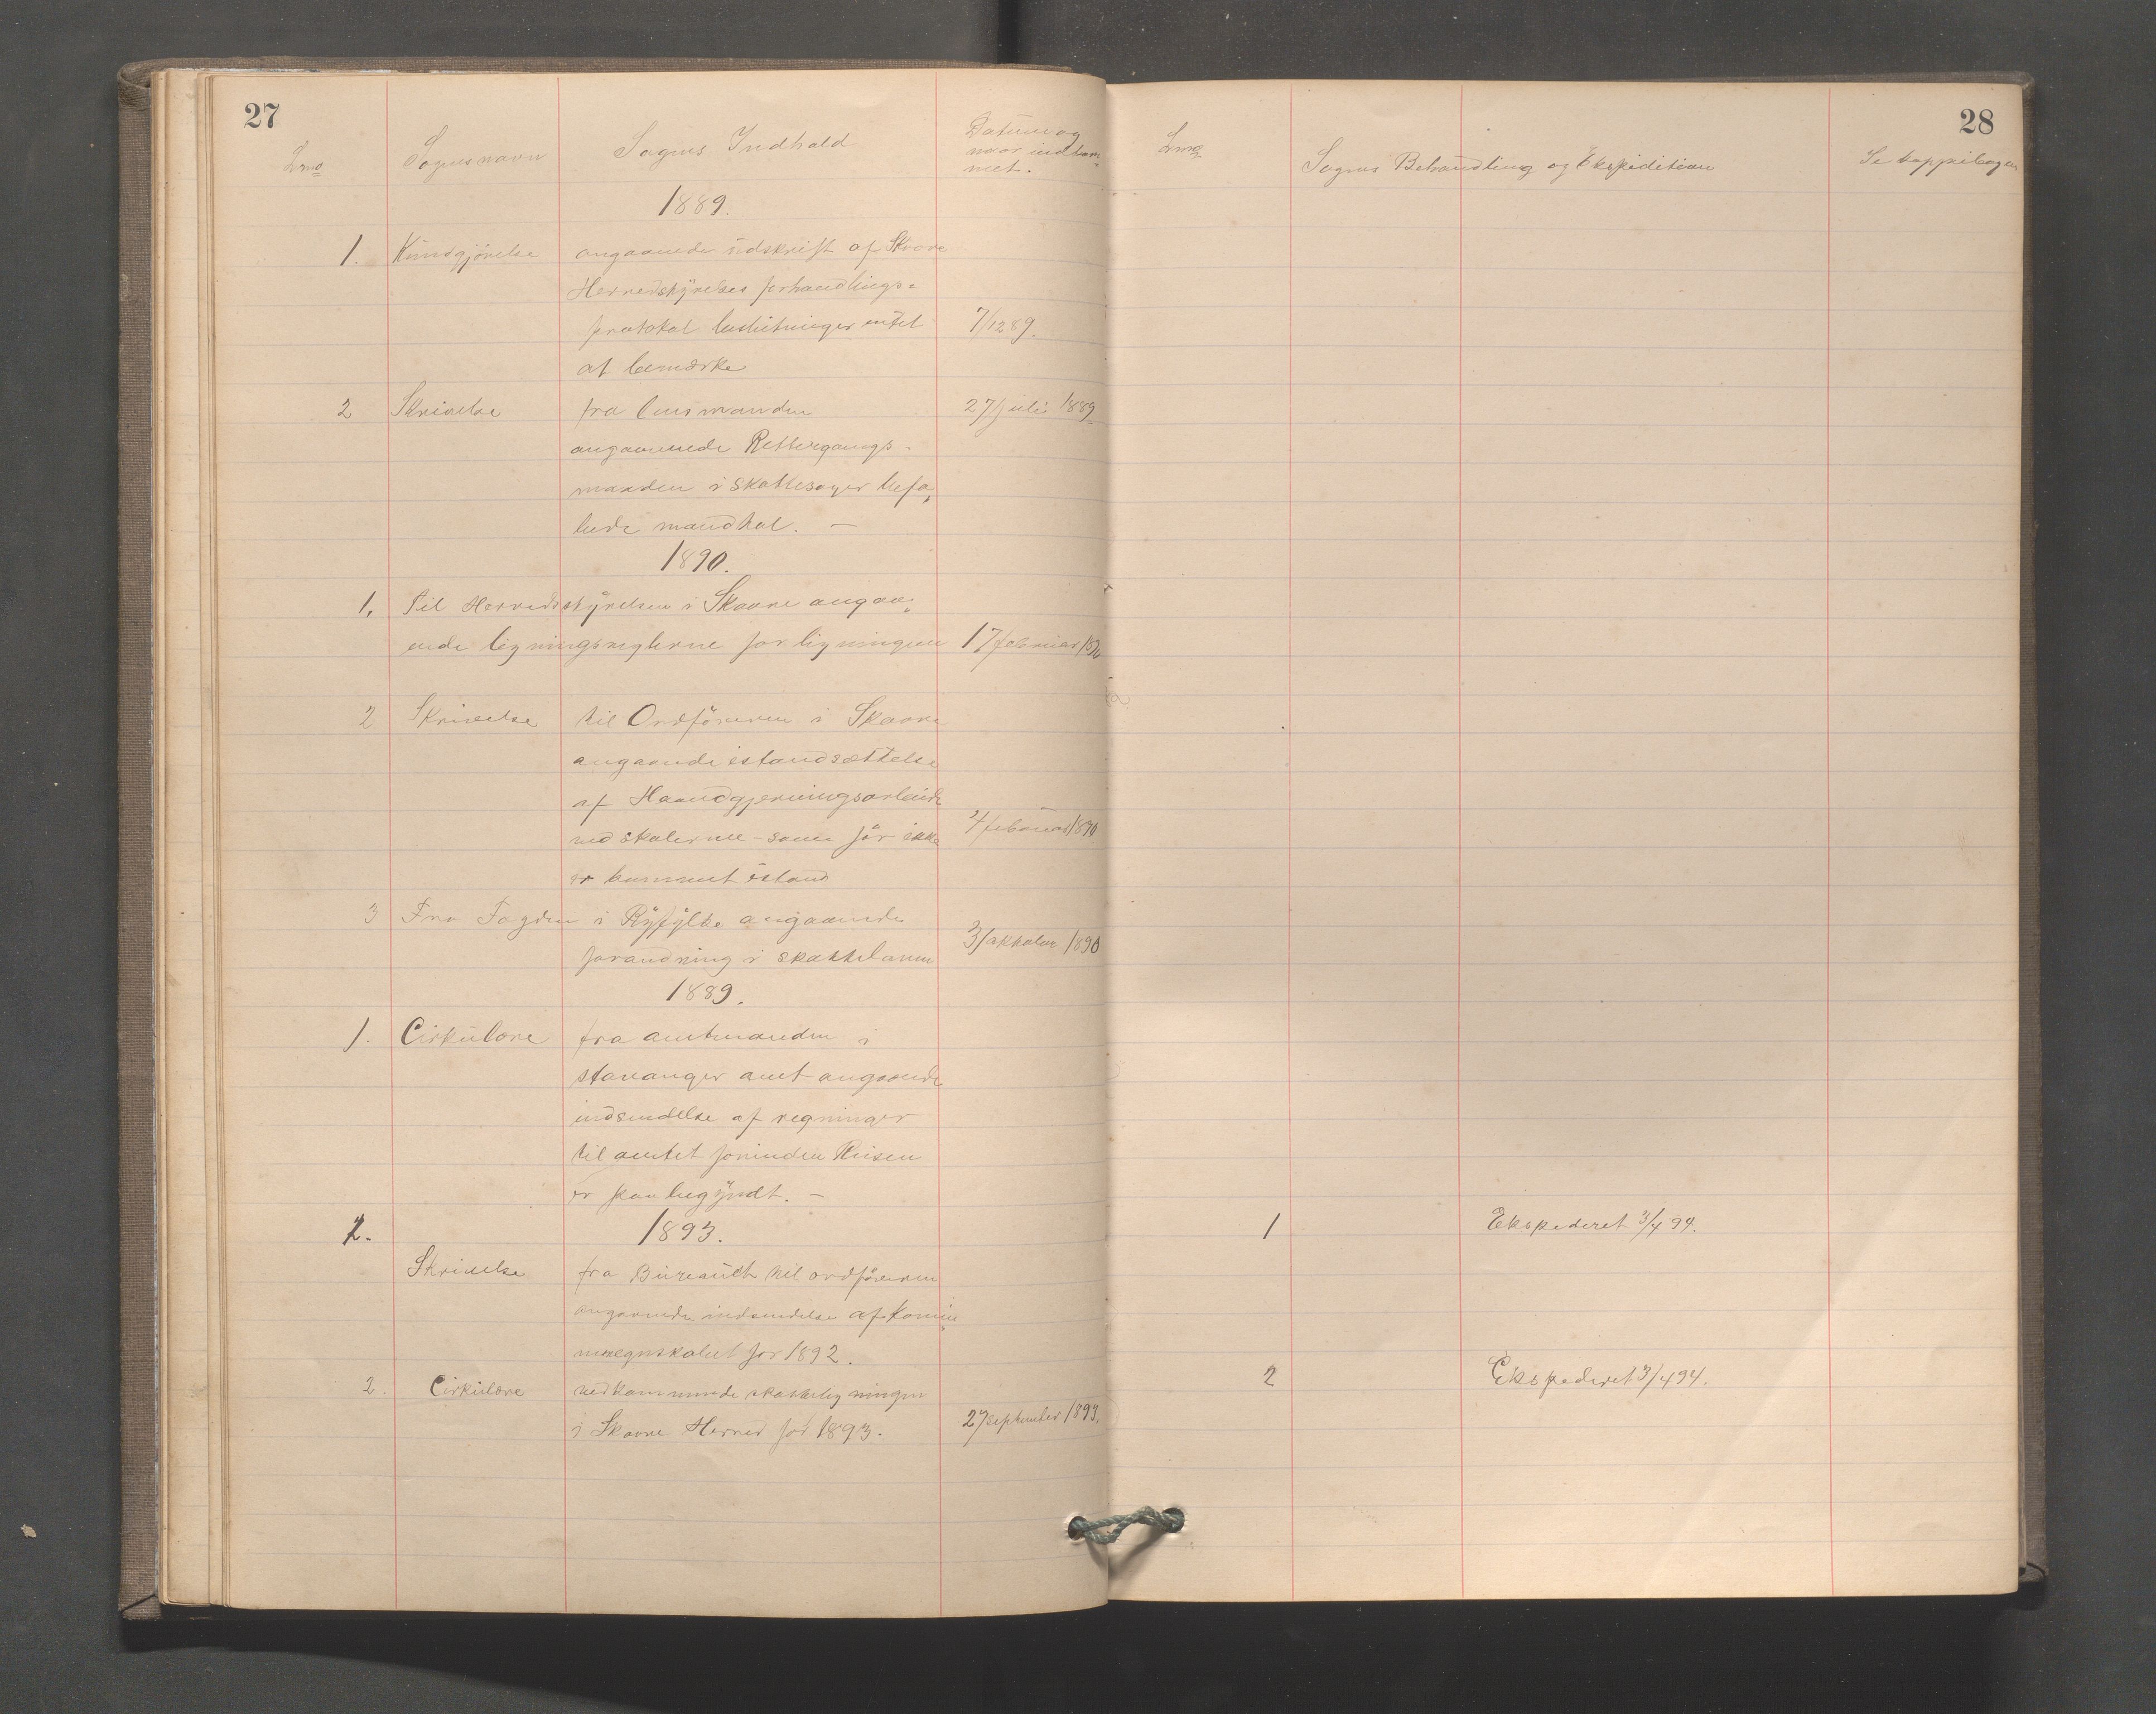 27
Lno Sagens navn Sagens Indhold Datum og
naar indkom=
met.
1889.
1. Kundgjörelse angaaende udskrift af Skaare
Herredstyrelses forhandlings=
protokol beslutninger intet 7/12 89.
at bemærke
2 Skrivelse fra lensmanden 27/juli 1889.
angaaende Rettergangs-
manden i skattesager befa„
lede mandtal. —
1890.
1. Til Herredsstyrelsen i Skaare angaa„
ende ligningsreglerne for ligningen 17 februar 1890
2 Skrivelse til Ordföreren i Skaare
angaaende istandsættelse
af Haandgjerningsarbeide
ved skolerne - som för ikke 4 februar 1890.
er kommet istand
3 Fra Fogden i Ryfylke angaaende
forandring i skatteloven 3/oktober 1890
1889.
1. Cirkulære fra amtmanden i
Stavanger amt angaaende
indsendelse af regninger
til amtet forinden Reisen
er paabegyndt. —
1. 1893.
Skrivelse fra Bureauet til ordföreren
angaaende indsendelse af Komu„
neregnskabet for 1892.
2. Cirkulære vedkommende skatteligningen
i Skaare Herred for 1893. 27 september 1893.
28
Lno Sagens Behandling og Ekspedition Se koppibogen
1 Ekspederet 3/4 94.
2 Ekspederet 3/4 94.